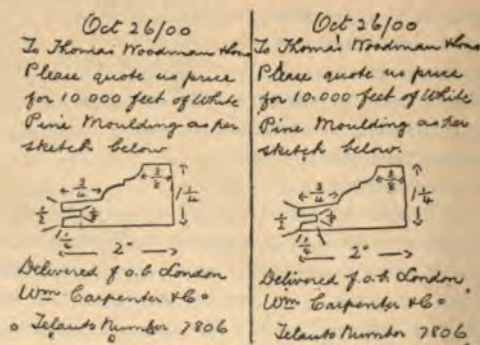 Oct 26/00
To Thomas Woodman & Sons
Please quote us price
for 10.000 feet of White
Pine Moulding as per
sketch below.
3/4
3/8
1 1/4
1/2
1/4
2"
Delivered f.o.b London
Wm Carpenter & Co
Telauto Number 7806
Oct 26/00
To Thomas Woodman & Sons
Please quote us price
for 10.000 feet of White
Pine Moulding as per
sketch below.
3/4
3/8
1 1/4
1/2
1/4
2"
Delivered f.o.b London
Wm Carpenter & Co
Telauto Number 7806